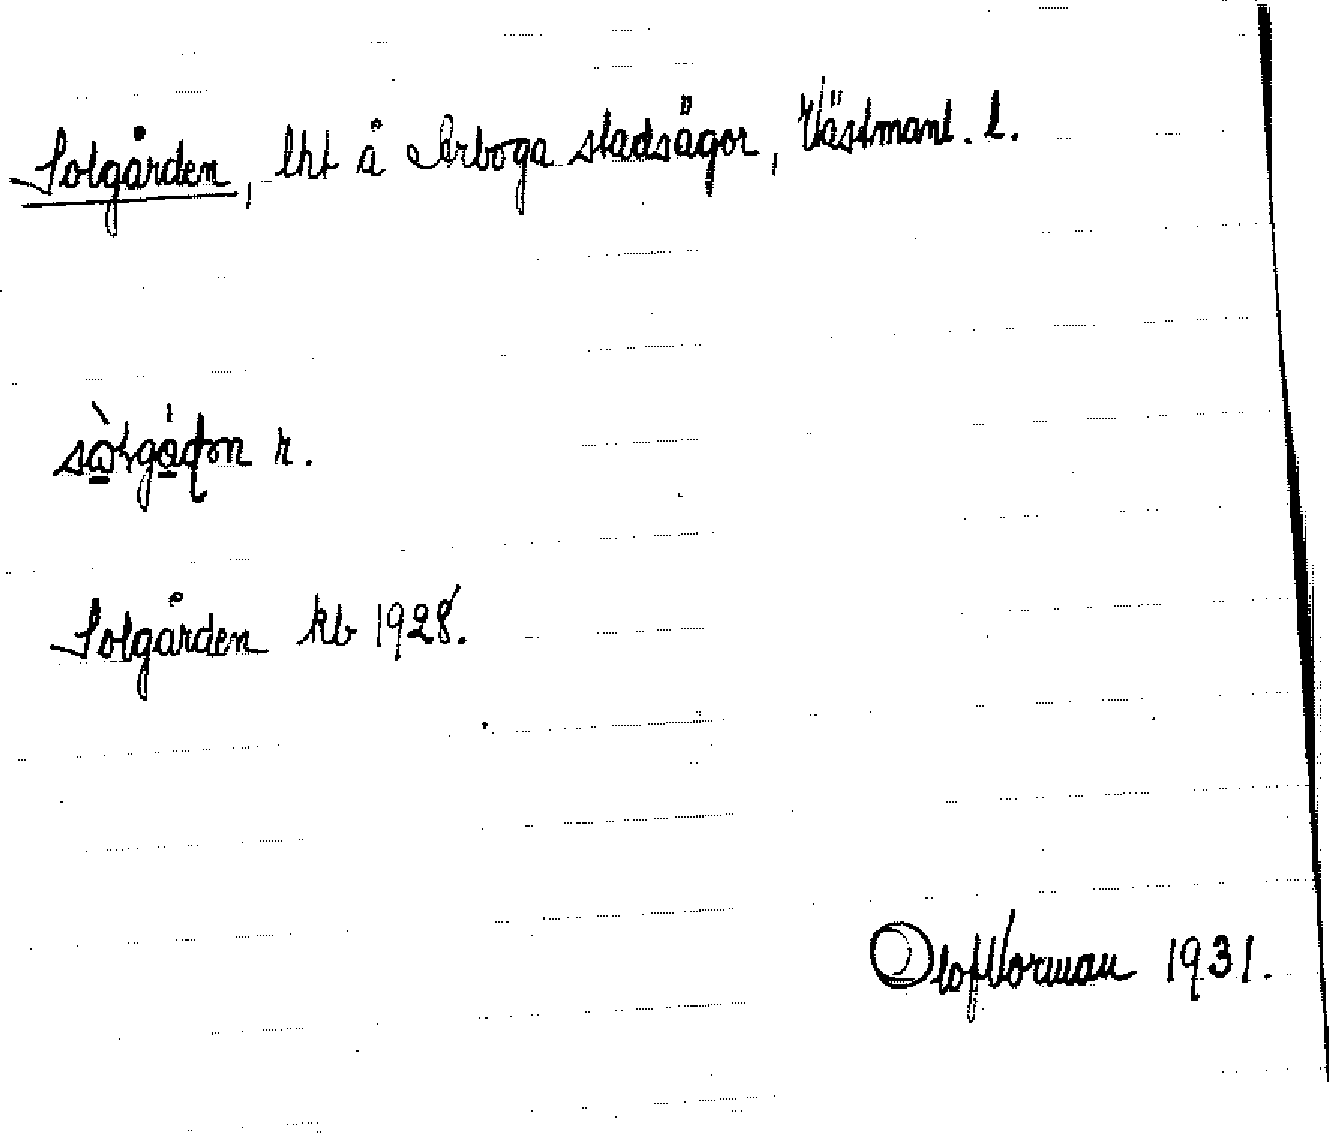 Solgården, lht å Arboga stadsägor, Västmanl. l.
r.
Solgården kb 1928.
Olof Norman 1931.